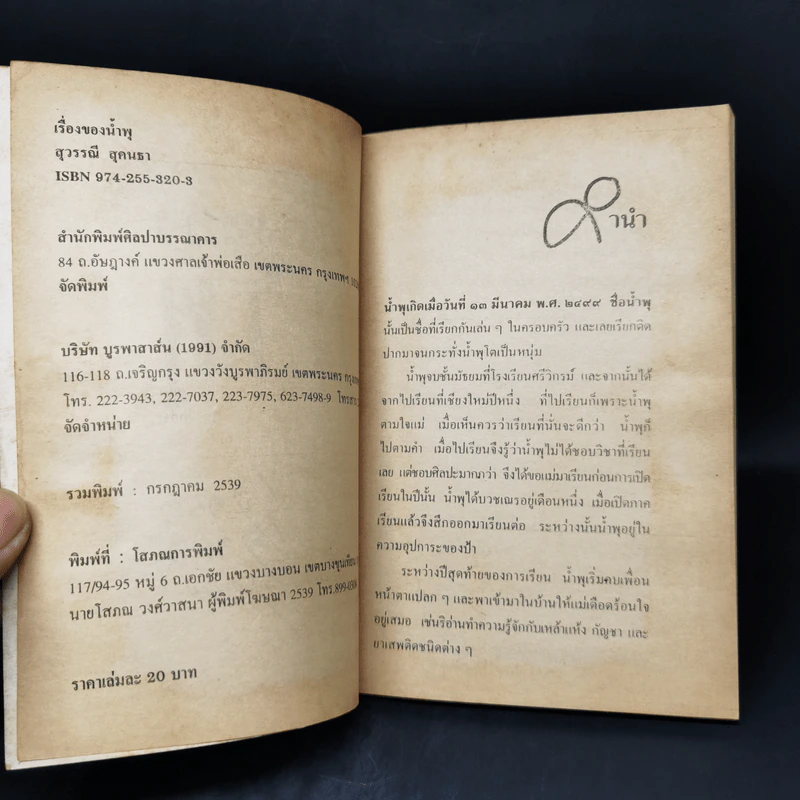 เรื่องของน้ำพุ
สุวรรณี สุคนธา
ISBN 974-255-320-3
สำนักพิมพ์ศิลปาบรรณาคาร
84 ถ.อัษฎางค์ แขวงศาลเจ้าพ่อเสือ เขตพระนคร กรุงเทพฯ
จัดพิมพ์
บริษัท บูรพาสาส์น (1991) จำกัด
116-118 ถ.เจริญกรุง แขวงวังบูรพาภิรมย์ เขตพระนคร
โทร. 222-3943, 222-7037, 223-7975, 623-7498-9.
จัดจำหน่าย
รวมพิมพ์ : กรกฎาคม 2539
พิมพ์ที่ : โสภณการพิมพ์
117/94-95 หมู่ 6 ถ.เอกชัย แขวงบางบอน เขตบางขุนเทียน
นายโสภณ วงศ์วาสนา ผู้พิมพ์โฆษณา 2539 โทร.899-0308
ราคาเล่มละ 20 บาท
คำนำ
น้ำพุเกิดเมื่อวันที่ ๑๓ มีนาคม พ.ศ. ๒๔๙๙ ชื่อน้ำพุ
นั้นเป็นชื่อที่เรียกกันเล่น ๆ ในครอบครัว และเลยเรียกติด
ปากมาจนกระทั่งน้ำพุโตเป็นหนุ่ม
น้ำพุจบชั้นมัธยมที่โรงเรียนศรีวิกรม์ และจากนั้นได้
จากไปเรียนที่เชียงใหม่ปีหนึ่ง ที่ไปเรียนก็เพราะน้ำพุ
ตามใจแม่ เมื่อเห็นควรว่าเรียนที่นั่นจะดีกว่า น้ำพุก็
ไปตามคำ เมื่อไปเรียนจึงรู้ว่าน้ำพุไม่ได้ชอบวิชาที่เรียน
เลย แต่ชอบศิลปะมากกว่า จึงได้ขอแม่มาเรียนก่อนการเปิด
เรียนในปีนั้น น้ำพุได้บวชเณรอยู่เดือนหนึ่ง เมื่อเปิดภาค
เรียนแล้วจึงสึกออกมาเรียนต่อ ระหว่างนั้นน้ำพุอยู่ใน
ความอุปการะของป้า
ระหว่างปีสุดท้ายของการเรียน น้ำพุเริ่มคบเพื่อน
หน้าตาแปลก ๆ และพาเข้ามาในบ้านให้แม่เดือดร้อนใจ
อยู่เสมอ เช่นริอ่านทำความรู้จักกับเหล้าแห้ง กัญชา และ
ยาเสพติดชนิดต่าง ๆ